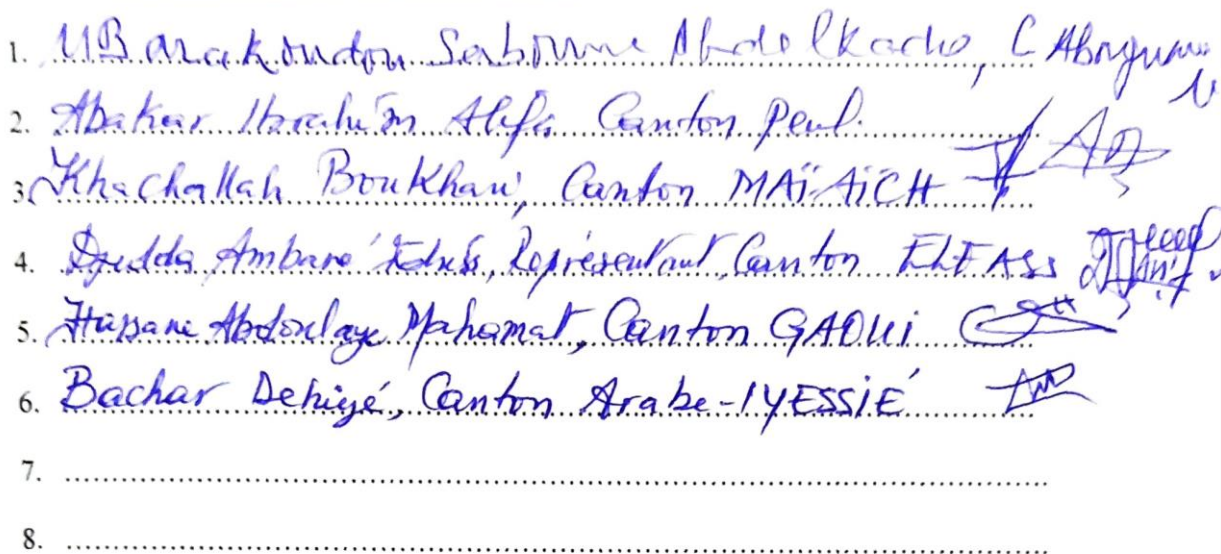 1. MBarakoudou Saboune Abdelkader, C
2. Abakar Ibrahim Alifa Canton Peul.
3. Khachallah Boukhari, Canton MAÏ-AÏCH
4. Djedda Ambané Idriss, Représentant, Canton ELFASS
5. Hassane Abdoulaye Mahamat, Canton GAOUI
6. Bachar Dehiyé, Canton Arabe-IYESSIÉ
7.
8.